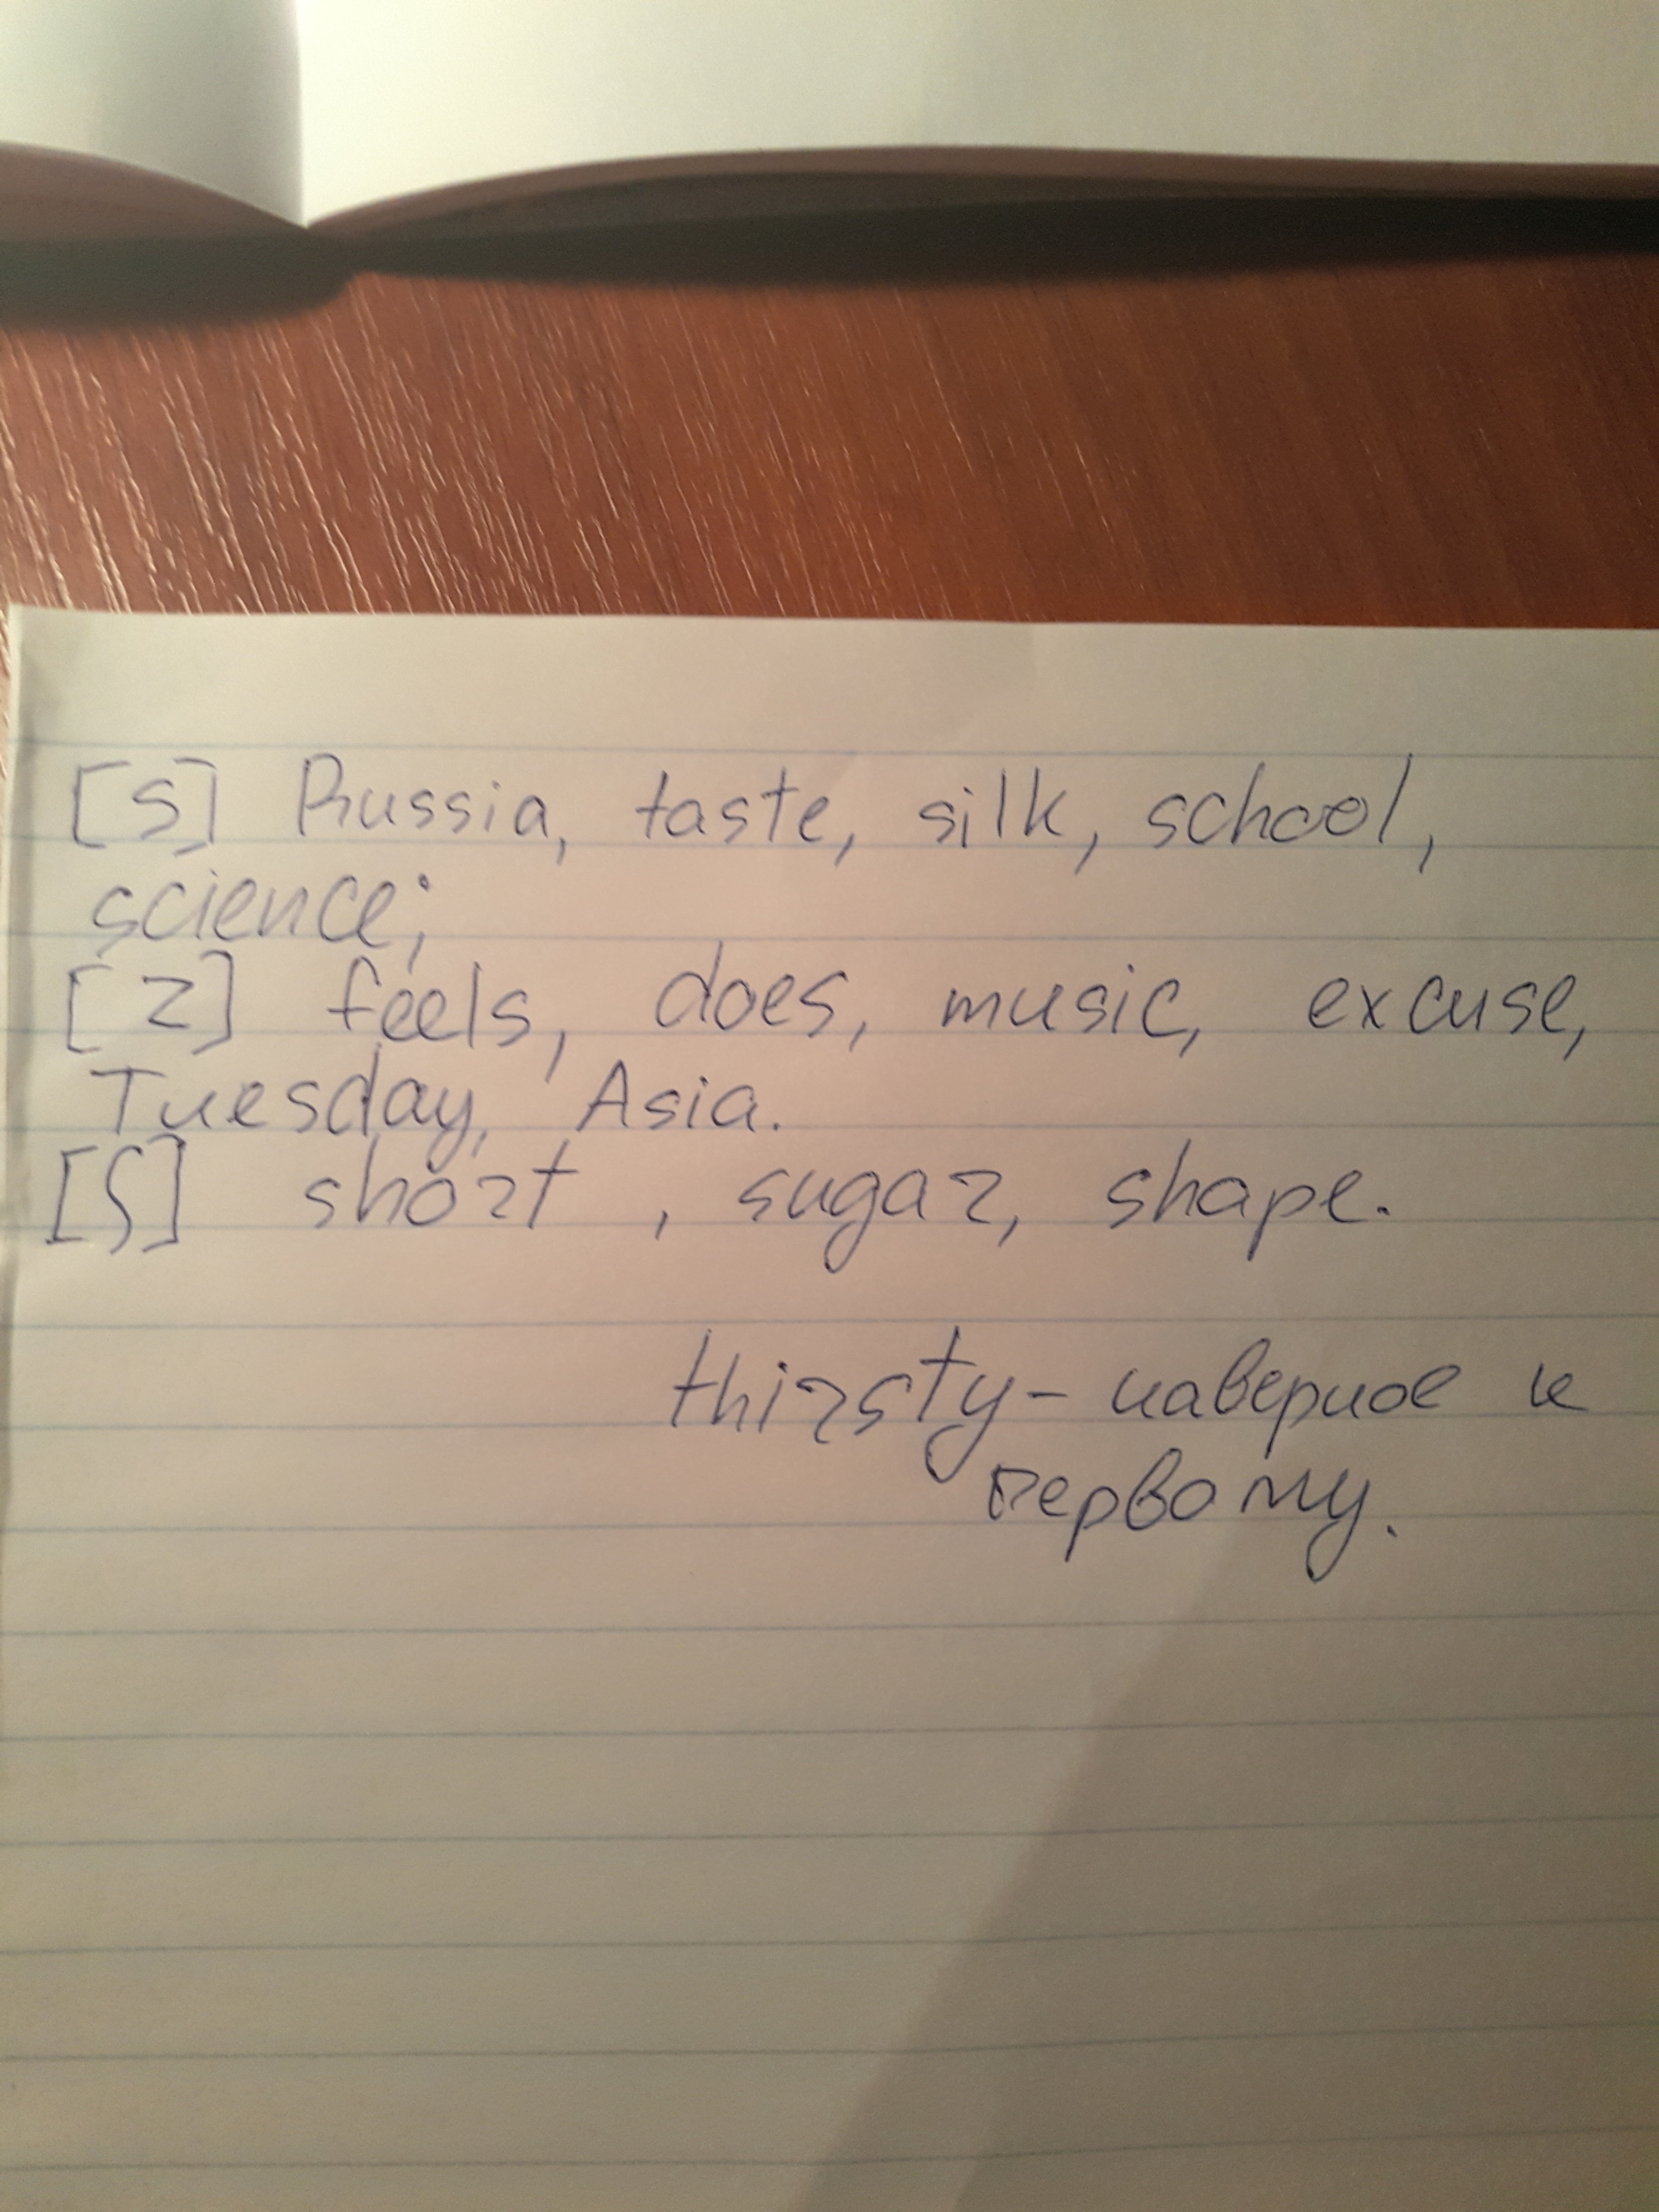 [s] Russia, taste, silk, school,
science;
[z] feels, does, music, excuse,
Tuesday, Asia.
[ʃ] short , sugar, shape.
thirsty - наверное к
первому.